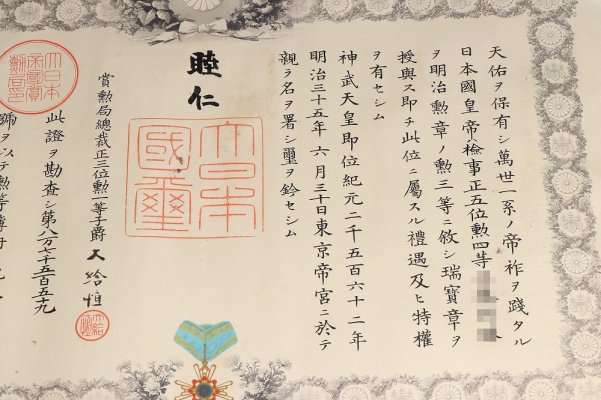 天佑ヲ保有シ萬世一系ノ帝祚ヲ踐タル
日本國皇帝檢事正五位勲四等
ヲ明治勲章ノ勲三等ニ敘シ瑞寶章ヲ
授與ス即チ此位ニ屬スル禮遇及ヒ特權
ヲ有セシム
神武天皇即位紀元二千五百六十二年
明治三十五年六月三十日東京帝宮ニ於テ
親ラ名ヲ署シ璽ヲ鈐セシム
睦仁
大日本
國璽
賞勲局總裁正三位勲一等子爵大給恒
此證ヲ勘査シ第八万七千五百五十九
號ヲ以テ勲等簿冊ニ
大日本
帝國賞
勲局印